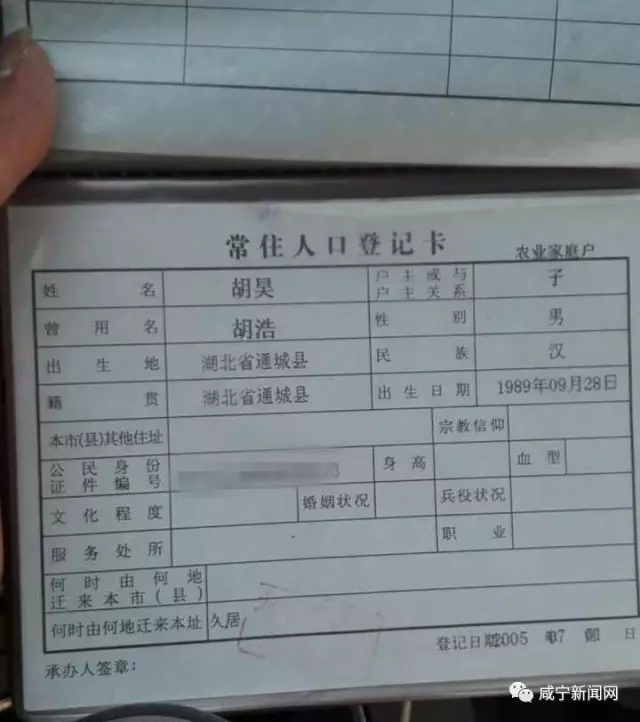 常住人口登记卡
农业家庭户
姓名 胡昊 户主或与户主关系 子
曾用名 胡浩 性别 男
出生地 湖北省通城县 民族 汉
籍贯 湖北省通城县 出生日期 1989年09月28日
本市(县)其他住址 宗教信仰
公民身份证件编号 身高 血型
文化程度 婚姻状况 兵役状况
服务处所 职业
何时由何地迁来本市(县)
何时由何地迁来本址 久居
承办人签章: 登记日期 2005 07 日
咸宁新闻网